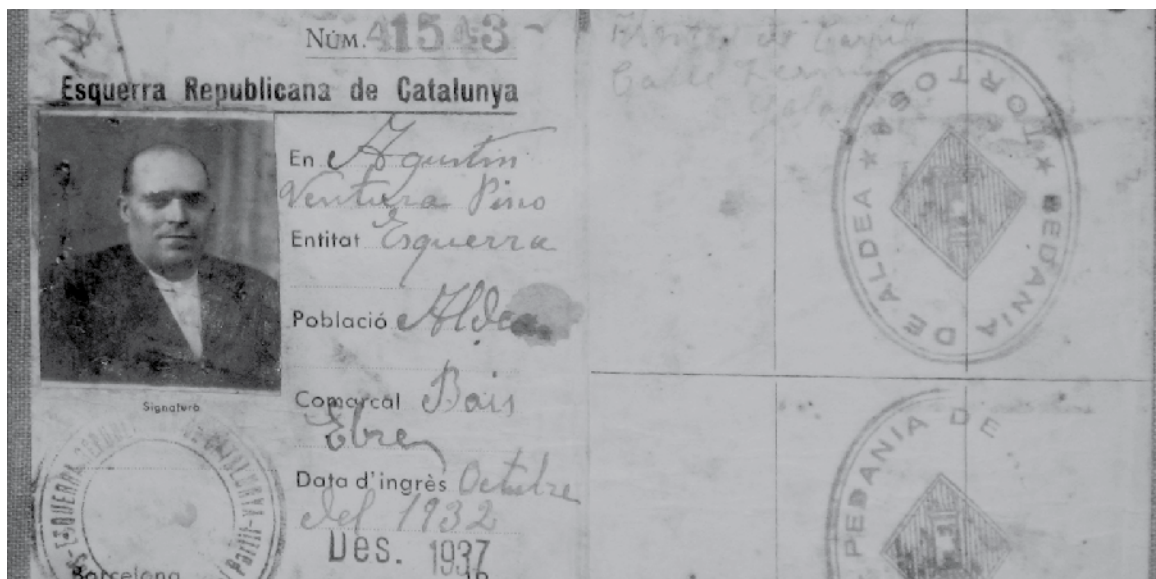 Núm. 41543
Esquerra Republicana de Catalunya
En Agustin
Ventura Pino
Entitat Esquerra
Població Aldea
Comarcal Bais
Ebre
Data d'ingrès Octubre
del 1932
Des. 1937
Signatura
ESQUERRA DE CATALUNYA - Partit
Barcelona
Calle
★ TORTOSA ★ PEDANIA DE ALDEA
PEDANIA DE